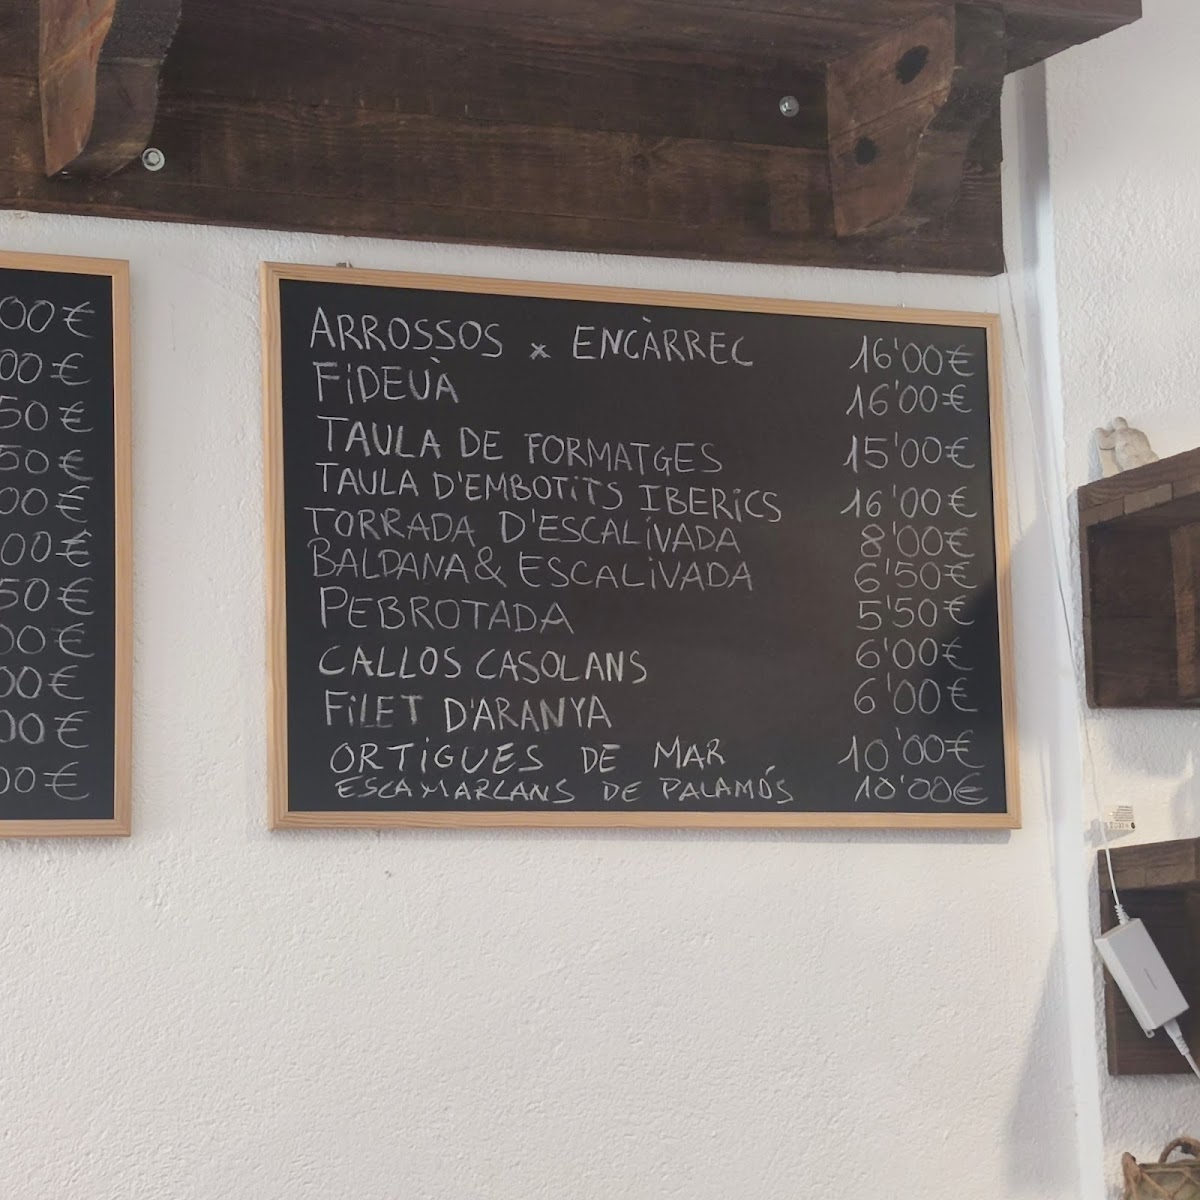 00€
00€
50€
50€
00€
00€
50€
00€
00€
00€
00€
ARROSSOS x ENCÀRREC 16'00€
FiDEUÀ 16'00€
TAULA DE FORMATGES 15'00€
TAULA D'EMBOTiTS IBERiCS 16'00€
TORRADA D'ESCALiVADA 8'00€
BALDANA & ESCALiVADA 6'50€
PEBROTADA 5'50€
CALLOS CASOLANS 6'00€
FiLET D'ARANYA 6'00€
ORTiGUES DE MAR 10'00€
ESCAMARLANS DE PALAMÓS 18'00€